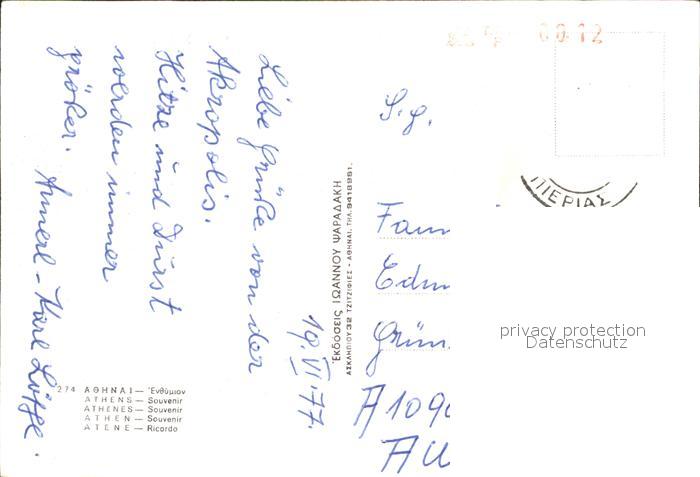 19.VI.77.
Liebe Grüße von der
Akropolis.
Hitze und Durst
werden immer
größer.
Annerl - Karl
274 ΑΘΗΝΑΙ — Ἐνθύμιον
ATHENS — Souvenir
ATHENES — Souvenir
ATHEN — Souvenir
ATENE — Ricordo
Ἐκδόσεις ΙΩΑΝΝΟΥ ΨΑΡΑΔΑΚΗ
ΑΣΚΛΗΠΙΟΥ 32 ΤΖΙΤΖΙΦΙΕΣ - ΑΘΗΝΑΙ, ΤΗΛ. 9418951.
00 12
ΠΙΕΡΙΑΣ
S.g.
Fam
Edm
Grün
A 109
AU
privacy protection
Datenschutz